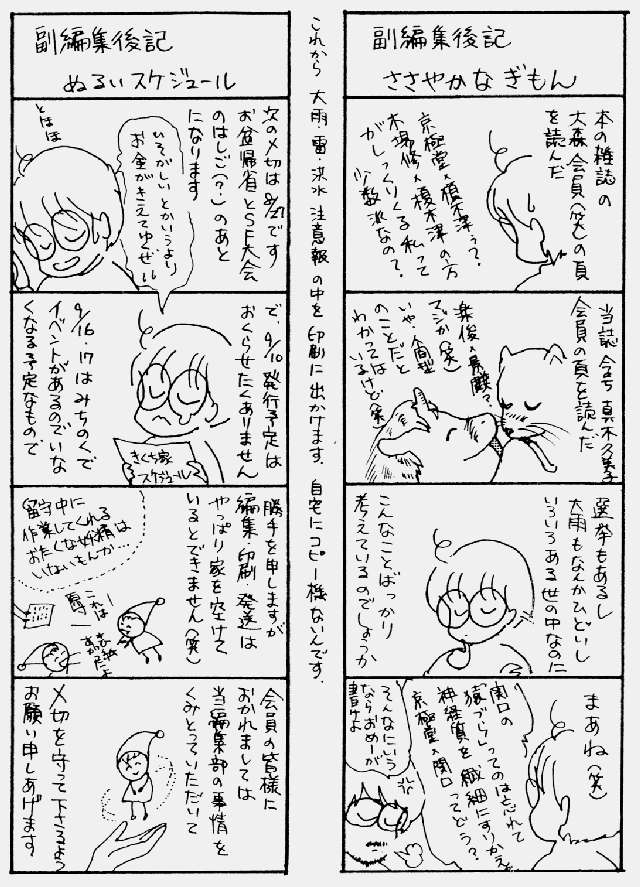 副編集後記
ささやかなぎもん
本の雑誌の
大森会員(笑)の頁
を読んだ
京極堂×榎木津ぅ?
木場修×榎木津の方
がしっくりくる私って
少数派なの?
当誌
会員の頁を読んだ
マジか(笑)
いや、人間型
のことだと
わかっては
いるけど(笑)
選挙もあるし
大雨もなんかひどいし
いろいろある世の中なのに
こんなことばっかり
考えているのでしょうか
まあね(笑)
関口の
「猿づら」ってのは忘れて
神経質を繊細にすりかえ
京極堂×関口ってどう?
そんなにいう
ならおめーが
書けよ
これから 大雨・雷・洪水 注意報の中を 印刷に出かけます. 自宅にコピー機ないんです.
副編集後記
ぬるいスケジュール
次の〆切は8/27です
お盆帰省とSF大会
のはしご(?)のあと
になります
いそがしいとかいうより
お金がきえてゆくぜ
とほほ
で、9/10発行予定は
おくらせたくありません
9/16・17はみちのくで
イベントがあるのでいな
くなる予定なもので
きくち家
スケジュール
勝手を申しますが
編集・印刷 発送は
やっぱり家を空けて
いるとできません(笑)
留守中に
作業してくれる
おたくな妖精は
いないもんか…
これは
会員の皆様に
おかれましては
当編集部の事情を
くみとっていただいて
〆切を守って下さるよう
お願い申しあげます